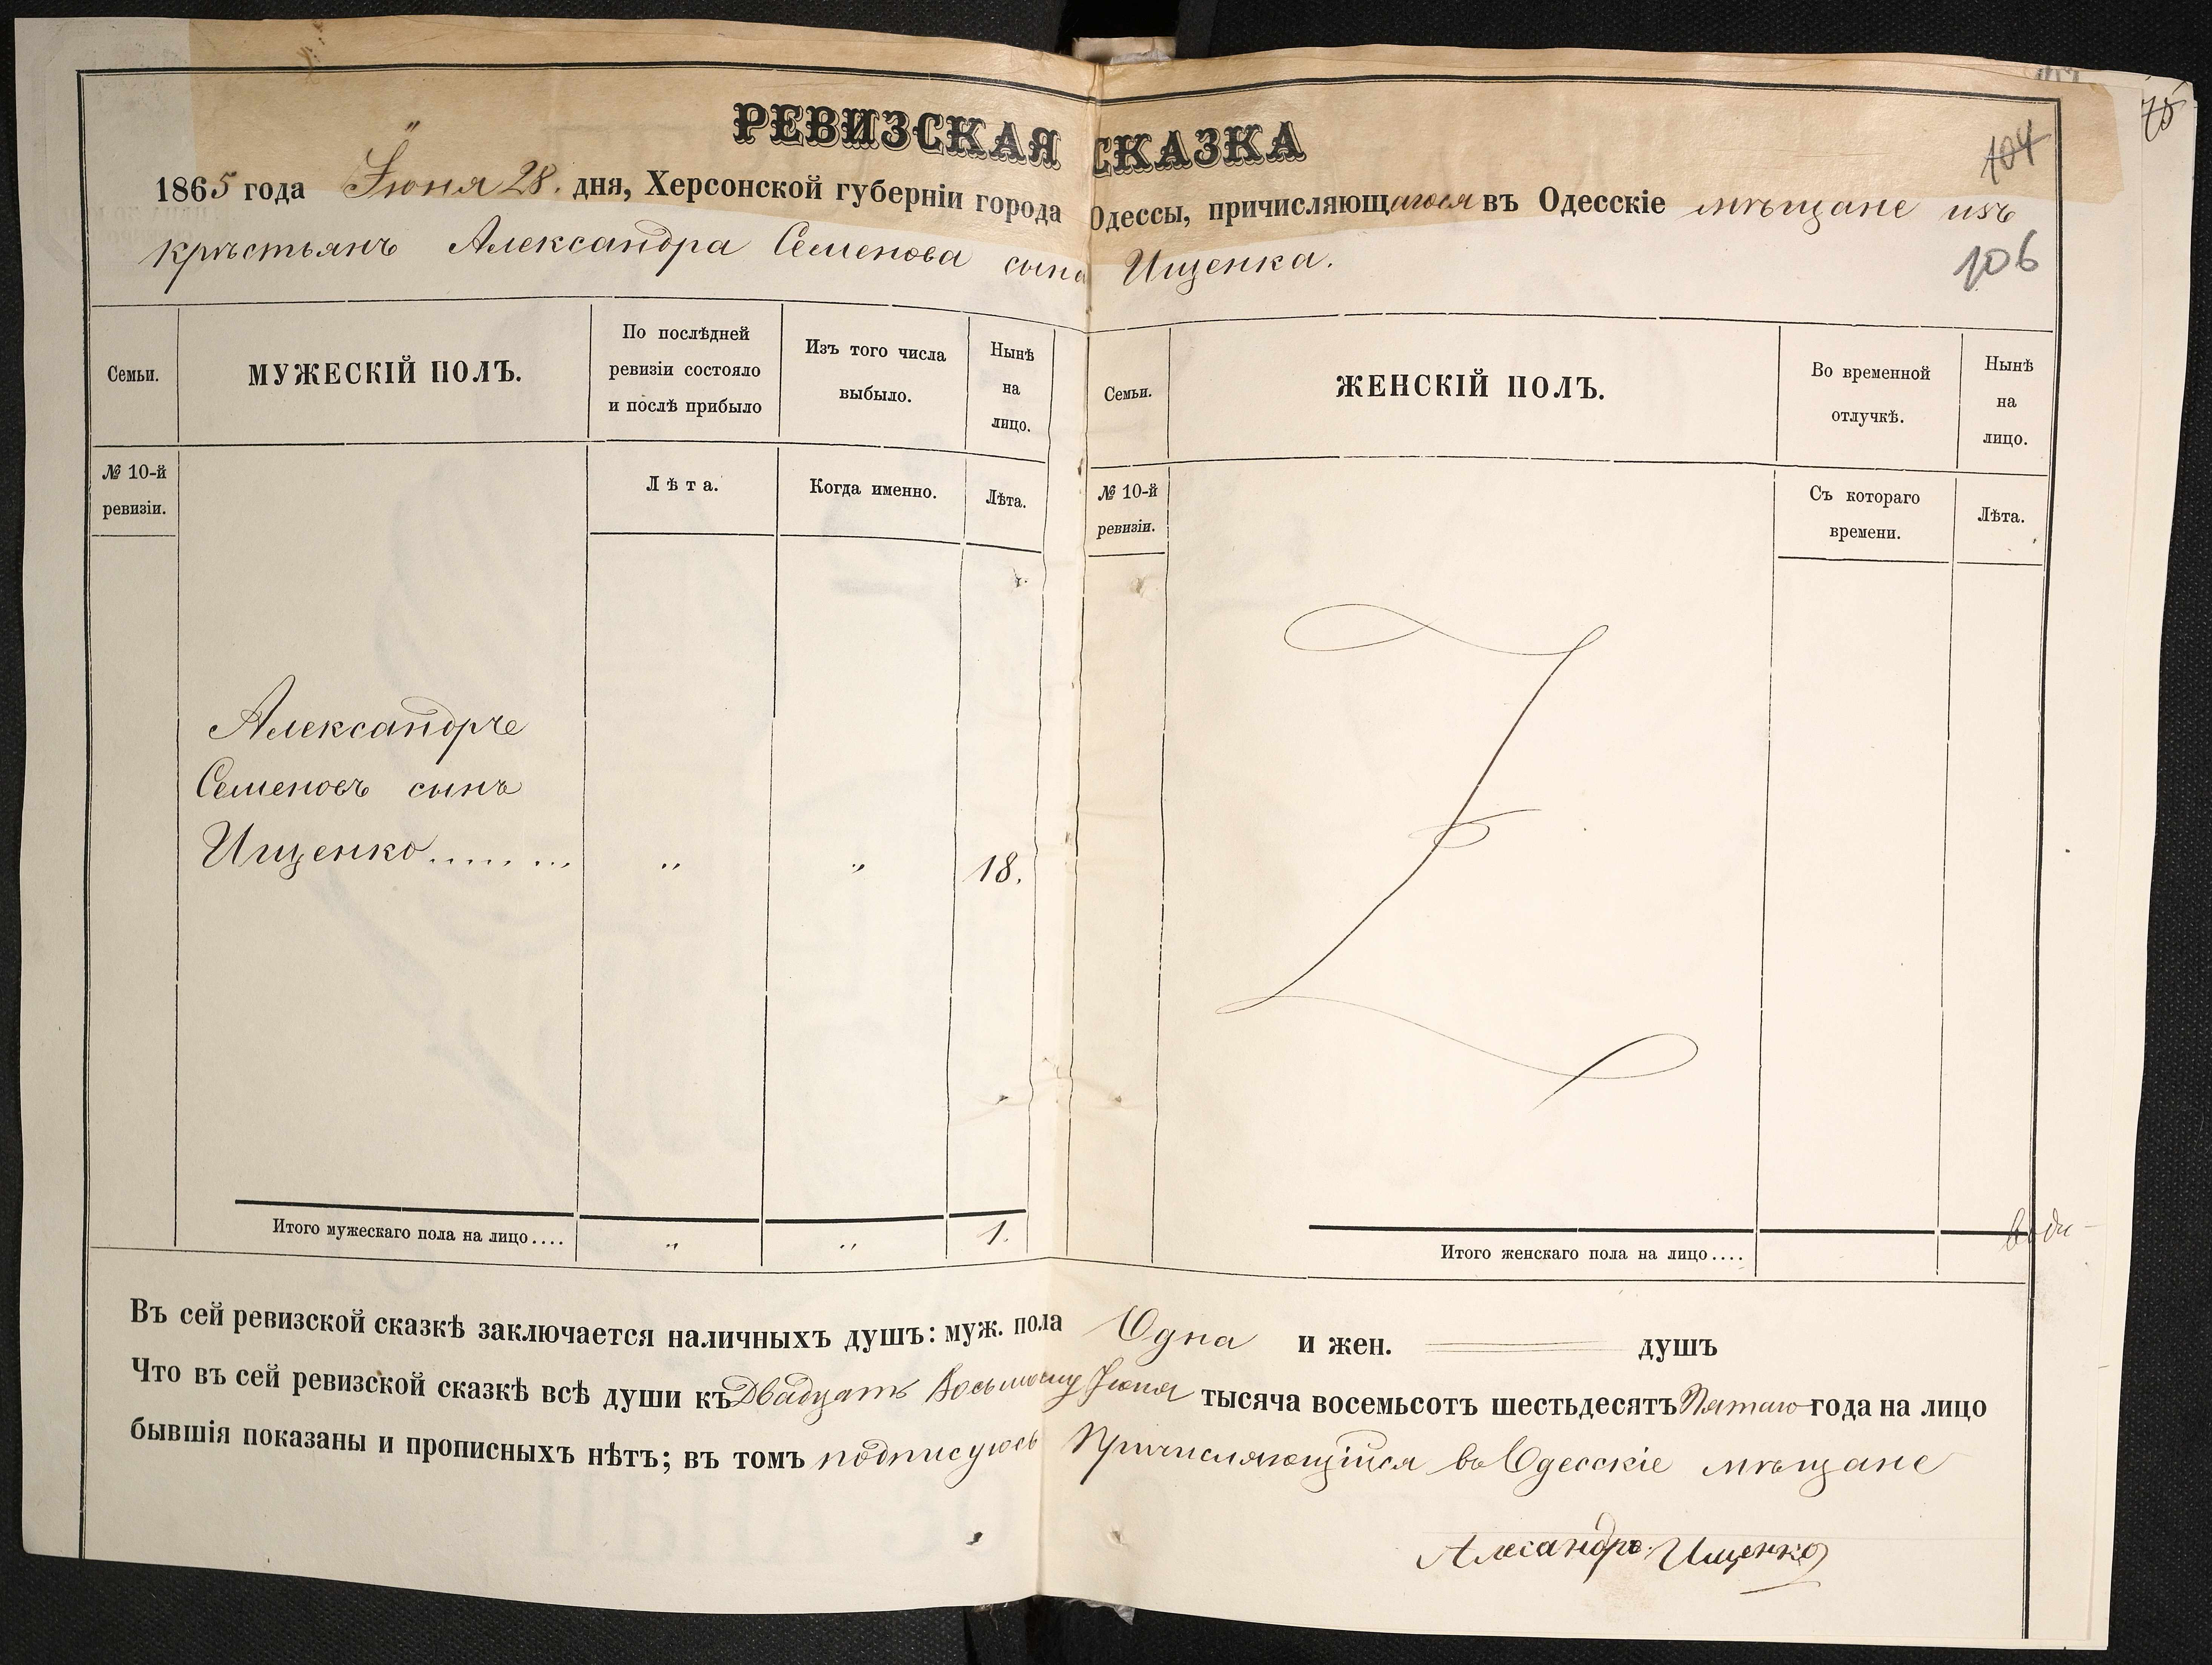 РЕВИЗСКАЯ СКАЗКА
104
1865 года Іюня 28. дня, Херсонской губерніи города Одессы, причисляющагося въ Одесскіе мѣщане изъ
крѣстьянъ Александра Семенова сына Ищенка.
106
Семьи.
МУЖЕСКІЙ ПОЛЪ.
По послѣдней
ревизіи состояло
и послѣ прибыло
Изъ того числа
выбыло.
Нынѣ
на
лицо.
Семьи.
ЖЕНСКІЙ ПОЛЪ.
Во временной
отлучкѣ.
Нынѣ
на
лицо.
№ 10-й
ревизіи.
Лѣта.
Когда именно.
Лѣта.
№ 10-й
ревизіи.
Съ котораго
времени.
Лѣта.
Александръ
Семеновъ сынъ
Ищенко........ „ „ 18.
Итого мужескаго пола на лицо.... „ „ 1.
Итого женскаго пола на лицо....
Въ сей ревизской сказкѣ заключается наличныхъ душъ: муж. пола Одна и жен. душъ
Что въ сей ревизской сказкѣ всѣ души къ Двадцать Восьмому Іюня тысяча восемьсотъ шестьдесятъ Пятаго года на лицо
бывшія показаны и прописныхъ нѣтъ; въ томъ подписуюсь Причисляющійся въ Одесскіе мѣщане
Алесандръ Ищенко